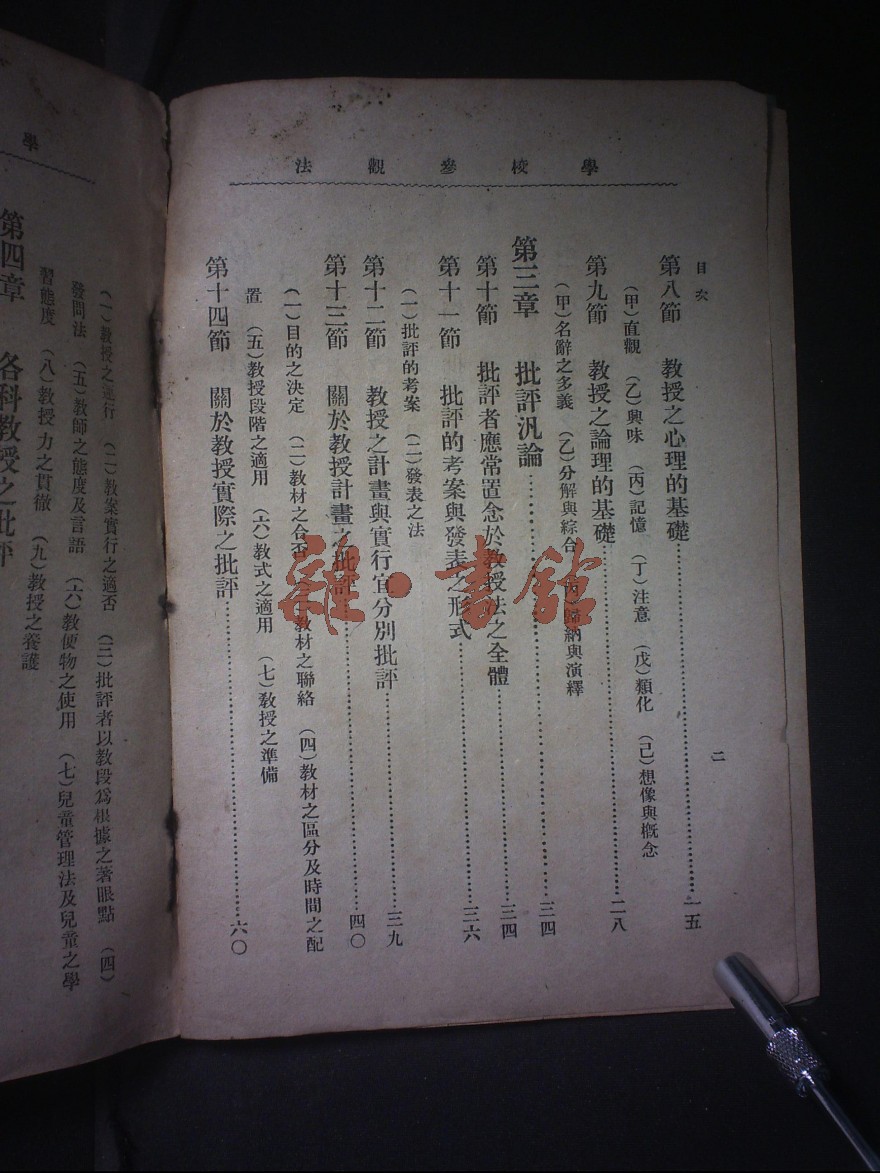 學校參觀法
目次
二
第八節　教授之心理的基礎………一五
（甲）直觀　（乙）興味　（丙）記憶　（丁）注意　（戊）類化　（己）想像與概念
第九節　教授之論理的基礎………二八
（甲）名辭之多義　（乙）分解與綜合　（丙）歸納與演繹
第三章　批評汎論………三四
第十節　批評者應常置念於教授法之全體………三四
第十一節　批評的考案與發表之形式………三六
（一）批評的考案　（二）發表之法
第十二節　教授之計畫與實行宜分別批評………三九
第十三節　關於教授計畫之批評………四〇
（一）目的之決定　（二）教材之合否　（三）教材之聯絡　（四）教材之區分及時間之配
置　（五）教授段階之適用　（六）教式之適用　（七）教授之準備
第十四節　關於教授實際之批評………六〇
學
（一）教授之進行　（二）教案實行之適否　（三）批評者以教段爲根據之著眼點　（四）
發問法　（五）教師之態度及言語　（六）教便物之使用　（七）兒童管理法及兒童之學
習態度　（八）教授力之貫徹　（九）教授之養護
第四章　各科教授之批評
雜·書館